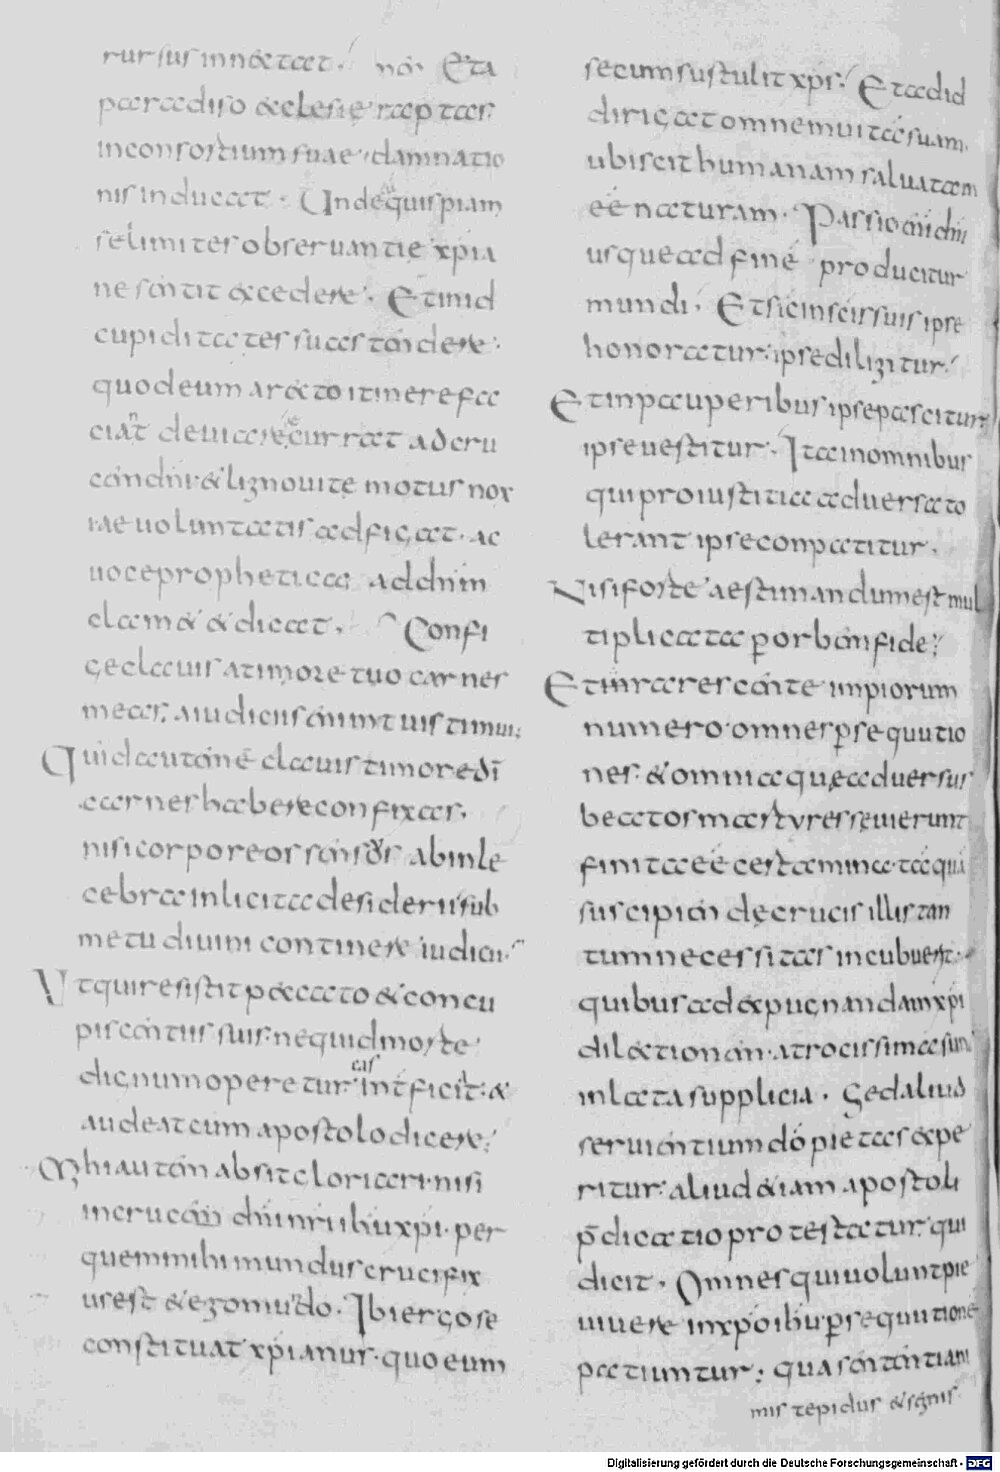 rursus innectat. non Et a
paradiso eclesie raptas
in consortium suae damnatio
nis inducat. Unde quispiam
se limites observantie xpia
ne sentit excedere. Et in id
cupiditates suas tendere.
quod eum a recto itinere fa
ciat deviare currat ad cru
cem dni & ligno vite motus nox
iae voluntatis adfigat. ac
voce prophetica ad dnm
clamet & dicat. Confi
ge clavis a timore tuo carnes
meas. a iudiciis enim tuis timui;
Quid e autem clavis timore di
carnes habere confixas.
nisi corporeos sensus ab inle
cebra inlicita desiderii sub
metu divini continere iudicii.
Ut qui resistit peccato & concu
piscentiis suis ne quid morte
dignum operetur eas interficit. &
audeat cum apostolo dicere.
Mihi autem absit gloriari nisi
in cruce dni nri ihu xpi. per
quem mihi mundus crucifix
us est & ego mundo. Ibi ergo se
constituat xpianus quo eum
secum sustulit xps. Et ad id
dirigat omnem vitae suam.
ubi scit humanam salvatam
ee naturam. Passio enim dni
usque ad fine producitur
mundi. Et sic in scis suis ipse
honoratur ipse diligitur.
Et in pauperibus ipse pascitur
ipse vestitur. Ita in omnibus
qui pro iustitia adversa to
lerant ipse conpatitur.
Nisi forte aestimandum est mul
tiplicata p orbem fide;
Et inrarescente impiorum
numero omnes psequutio
nes. & omnia que adversus
beatos martyres sevierunt
finita ee certamina. ta qua
suscipiende crucis illis tan
tum necessitas incubuerit.
quibus ad expugnandam xpi
dilectionem atrocissima sun
inlata supplicia. Sed aliud
servientium do pietas expe
ritur aliud etiam apostoli
pdicatio protestatur. qui
dicit. Omnes qui volunt pie
vivere in xpo ihu psequutione
patiuntur; qua sententiam
mis tepidus & segnis